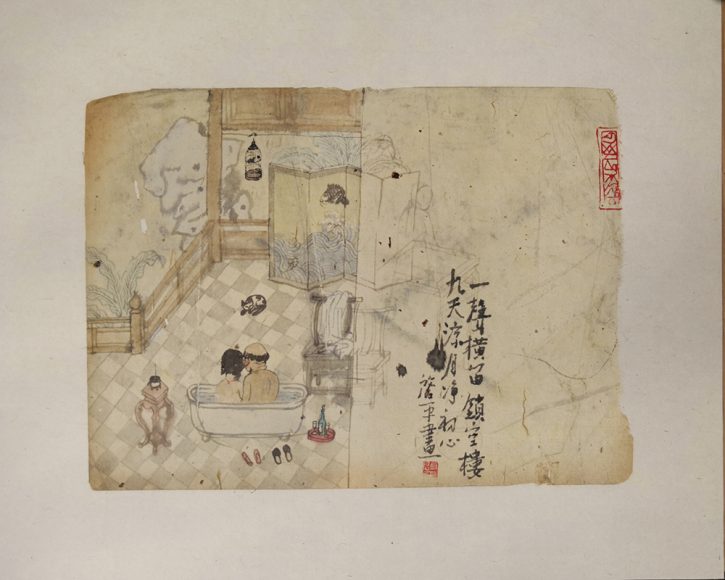 一聲橫笛鎖空樓
九天涼月淨初心
畫